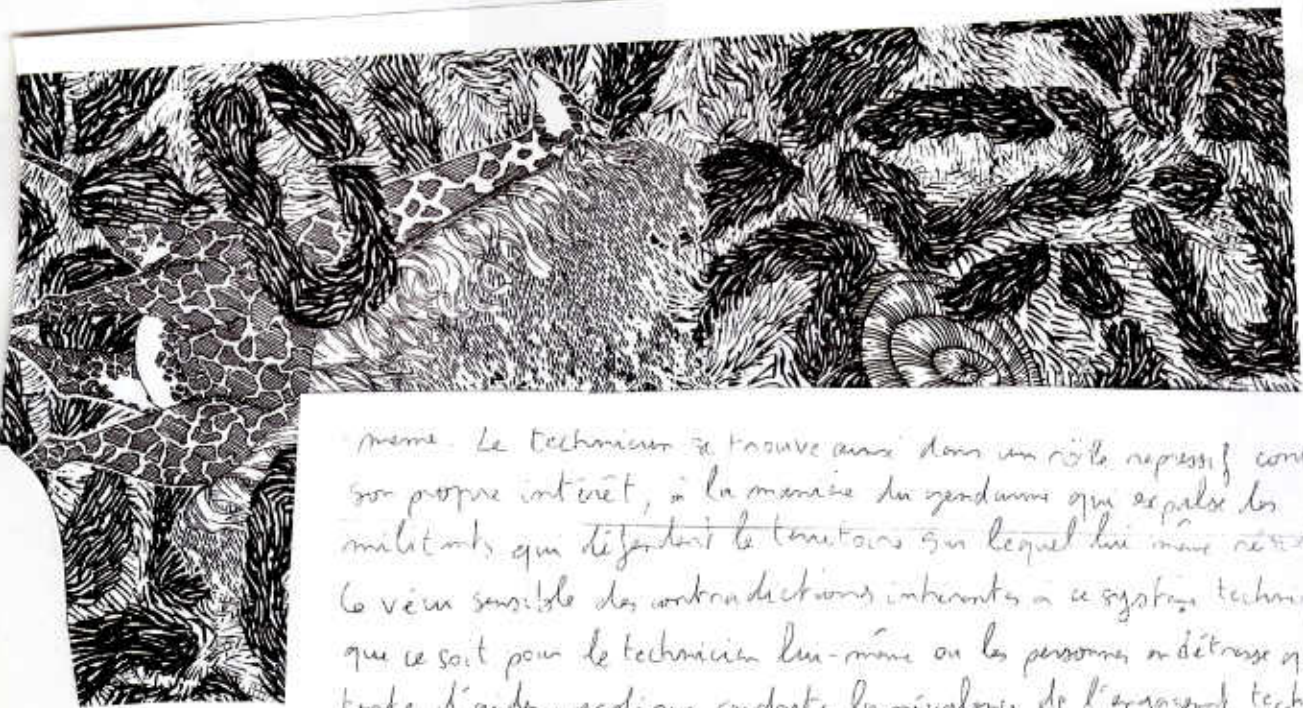 même. Le technicien se trouve ainsi dans un rôle répressif
son propre intérêt, à la manière du gendarme qui expulse les
militants qui défendent le territoire sur lequel lui même
Le vécu sensible des contradictions inhérentes à ce système
que ce soit pour le technicien lui-même ou les personnes en détresse
tente d'aider